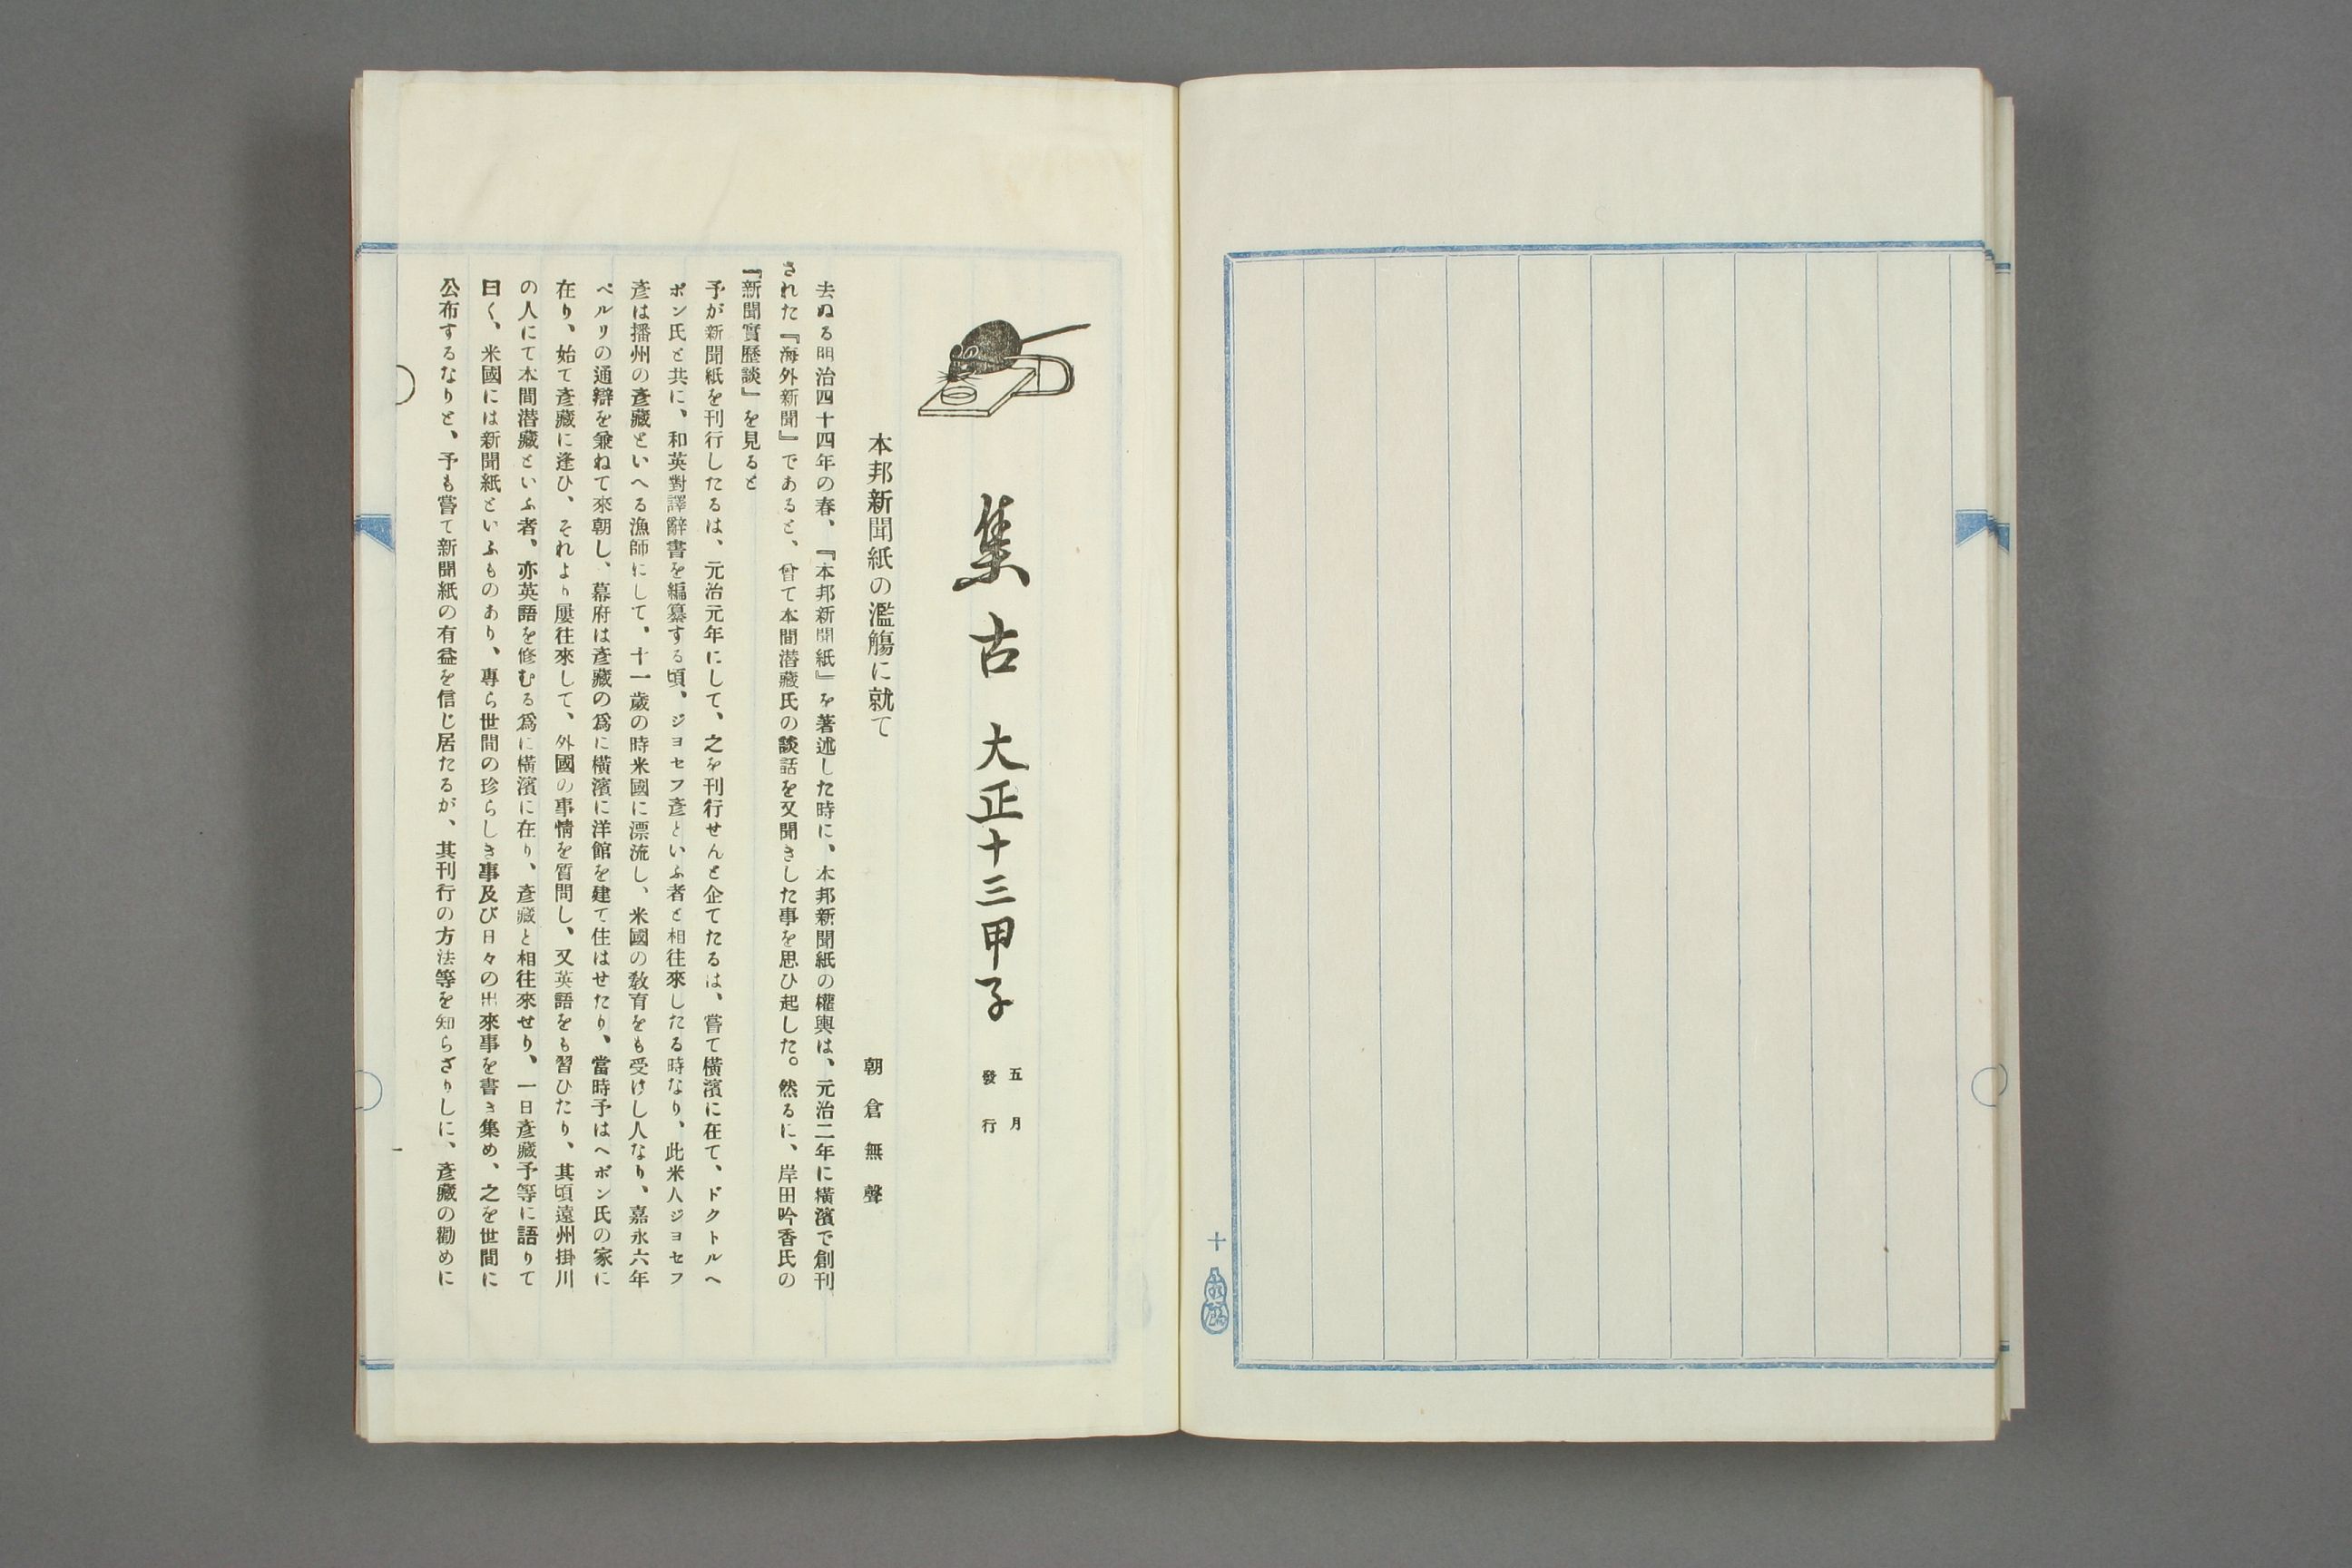 十
集古 大正十三甲子
五月
發行
本邦新聞紙の濫觴に就て
朝倉無聲
去ぬる明治四十四年の春、『本邦新聞紙』を著述した時に、本邦新聞紙の權輿は、元治二年に橫濱で創刊
された『海外新聞』であると、曾て本間潜藏氏の談話を又聞きした事を思ひ起した。然るに、岸田吟香氏の
『新聞實歷談』を見ると
予が新聞紙を刊行したるは、元治元年にして、之を刊行せんと企てたるは、嘗て橫濱に在て、ドクトルヘ
ボン氏と共に、和英對譯辭書を編纂する頃、ジヨセフ彥といふ者と相往來したる時なり、此米人ジヨセフ
彥は播州の彥藏といへる漁師にして、十一歲の時米國に漂流し、米國の敎育をも受けし人なり、嘉永六年
ペルリの通辯を兼ねて來朝し、幕府は彥藏の爲に橫濱に洋館を建て住はせたり、當時予はヘボン氏の家に
在り、始て彥藏に逢ひ、それより屢往來して、外國の事情を質問し、又英語をも習ひたり、其頃遠州掛川
の人にて本間潜藏といふ者、亦英語を修むる爲に橫濱に在り、彥藏と相往來せり、一日彥藏予等に語りて
曰く、米國には新聞紙といふものあり、專ら世間の珍らしき事及び日々の出來事を書き集め、之を世間に
公布するなりと、予も嘗て新聞紙の有益を信じ居たるが、其刊行の方法等を知らざりしに、彥藏の勸めに